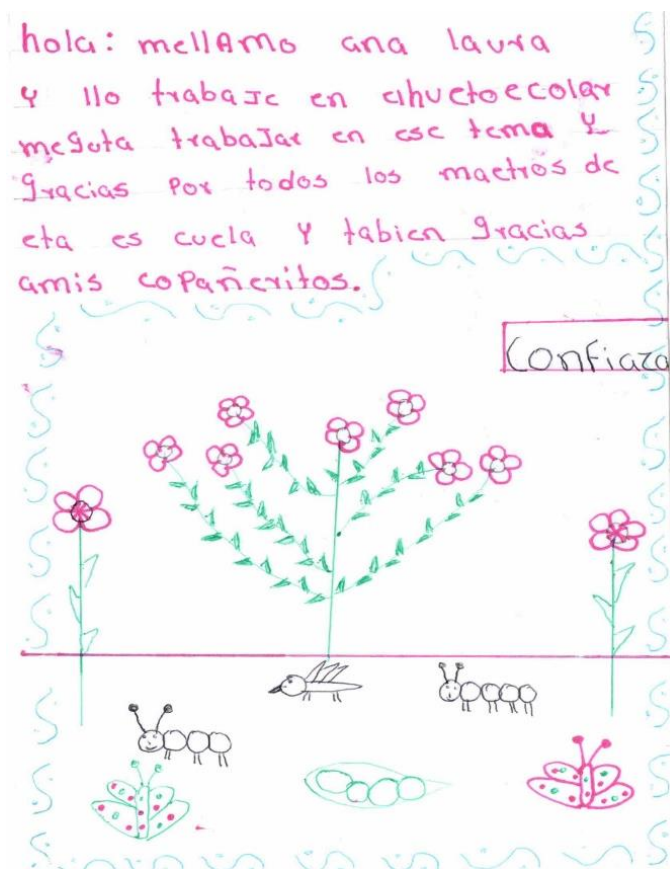 hola: mellAmo ana laura
y llo trabaJe en elhuetoecolar
meguta trabaJar en ese tema y
gracias Por todos los maetros de
eta es cuela y tabien gracias
amis coPañeritos.
Confiaza